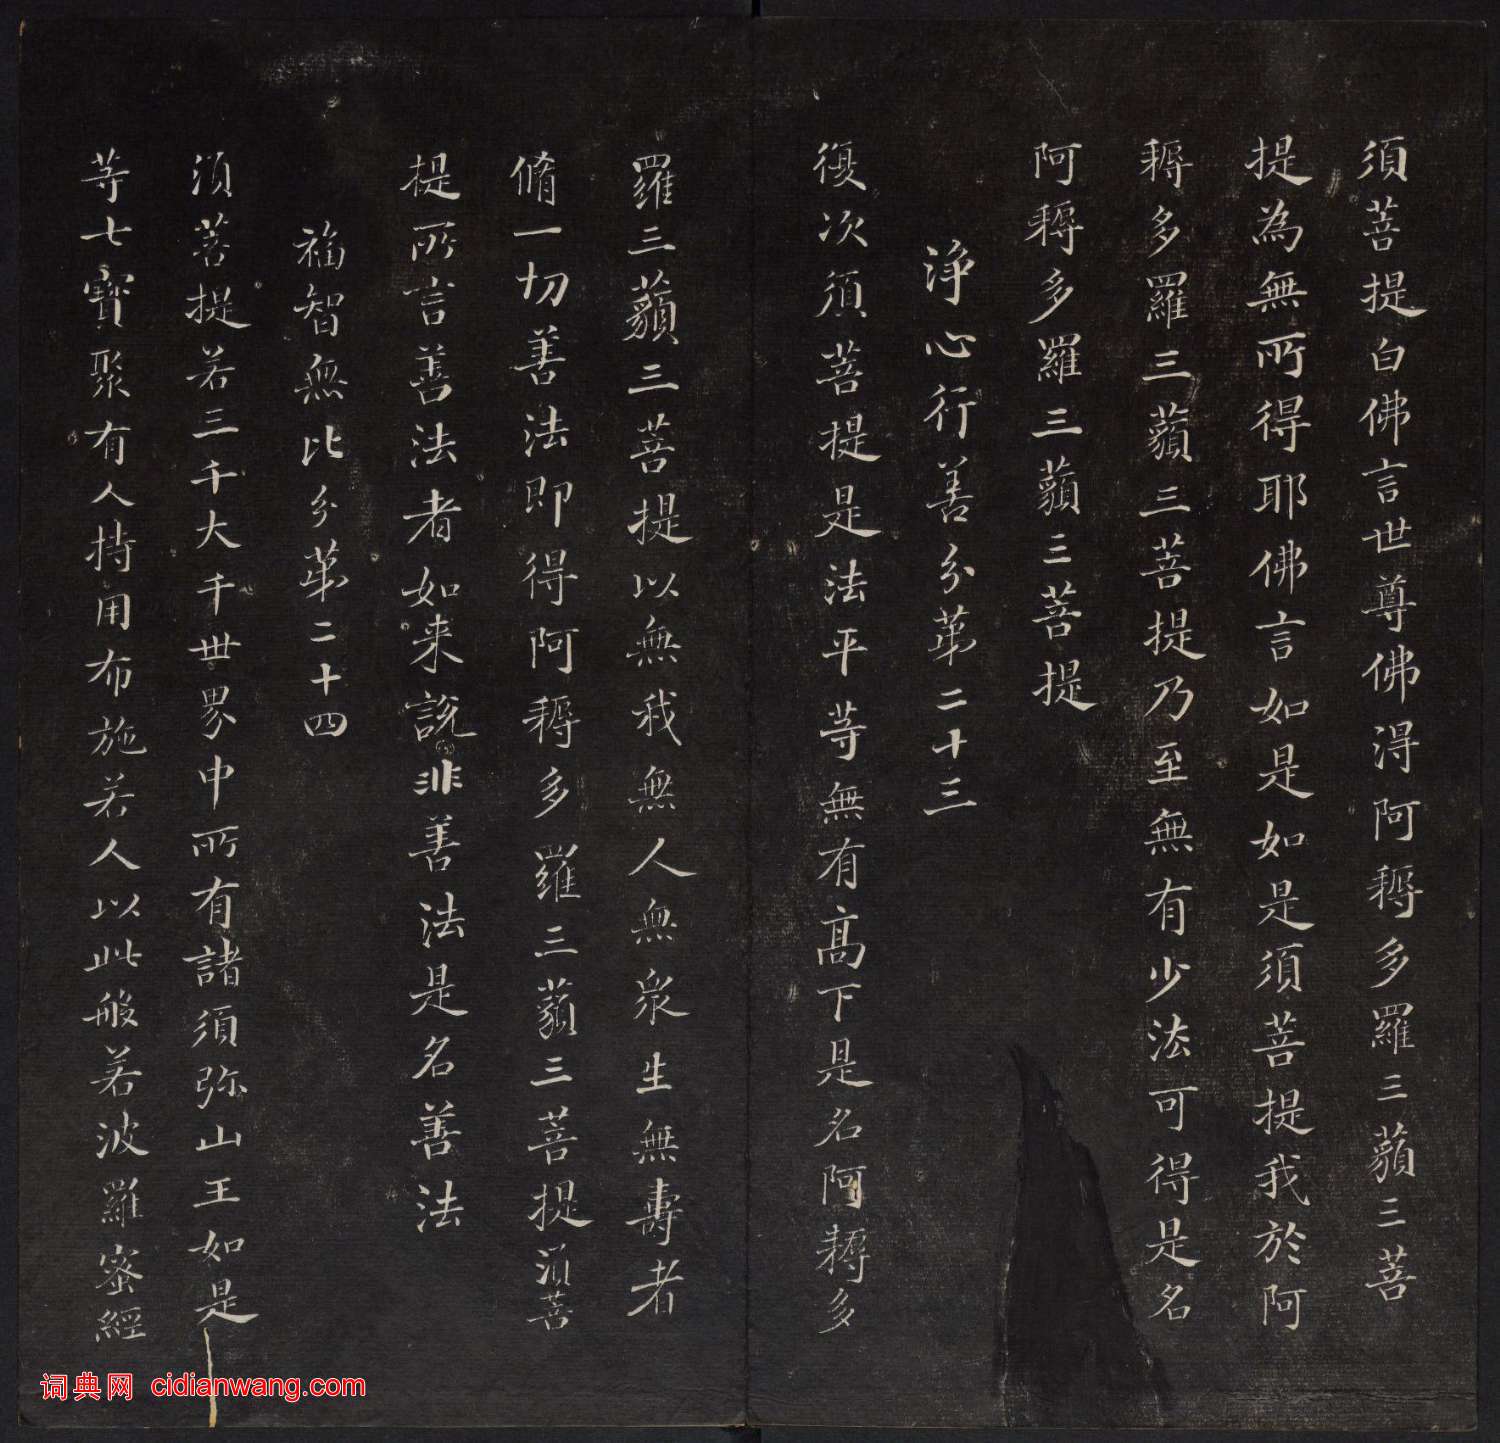 須菩提白佛言世尊佛得阿耨多羅三藐三菩
提為無所得耶佛言如是如是須菩提我於阿
耨多羅三藐三菩提乃至無有少法可得是名
阿耨多羅三藐三菩提
淨心行善分第二十三
復次須菩提是法平等無有高下是名阿耨多
羅三藐三菩提以無我無人無眾生無壽者
脩一切善法即得阿耨多羅三藐三菩提須菩
提所言善法者如来說非善法是名善法
福智無比分第二十四
須菩提若三千大千世界中所有諸須弥山王如是
等七寶聚有人持用布施若人以此般若波羅蜜經
词典网 cidianwang.com